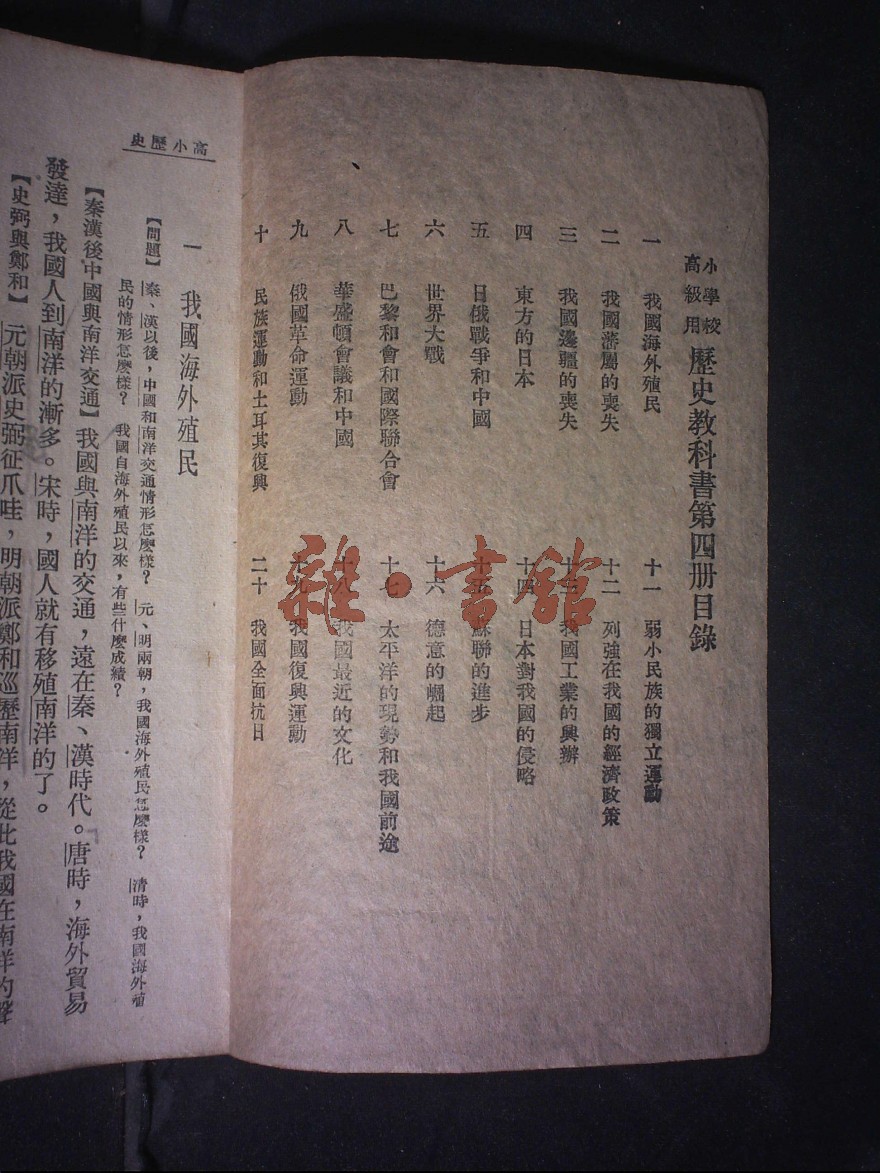 小學校高級用 歷史教科書第四册目錄
一 我國海外殖民
二 我國藩屬的喪失
三 我國邊疆的喪失
四 東方的日本
五 日俄戰爭和中國
六 世界大戰
七 巴黎和會和國際聯合會
八 華盛頓會議和中國
九 俄國革命運動
十 民族運動和土耳其復興
十一 弱小民族的獨立運動
十二 列強在我國的經濟政策
十三 我國工業的興辦
十四 日本對我國的侵略
十五 蘇聯的進步
十六 德意的崛起
十七 太平洋的現勢和我國前途
十八 我國最近的文化
十九 我國復興運動
二十 我國全面抗日
雜·書館
高小歷史
一 我國海外殖民
【問題】 秦、漢以後，中國和南洋交通情形怎麼樣？ 元、明兩朝，我國海外殖民怎麼樣？ 清時，我國海外殖
民的情形怎麼樣？ 我國自海外殖民以來，有些什麼成績？
【秦漢後中國與南洋交通】我國與南洋的交通，遠在秦、漢時代。唐時，海外貿易
發達，我國人到南洋的漸多。宋時，國人就有移殖南洋的了。
【史弼與鄭和】 元朝派史弼征爪哇，明朝派鄭和巡歷南洋，從此我國在南洋的聲